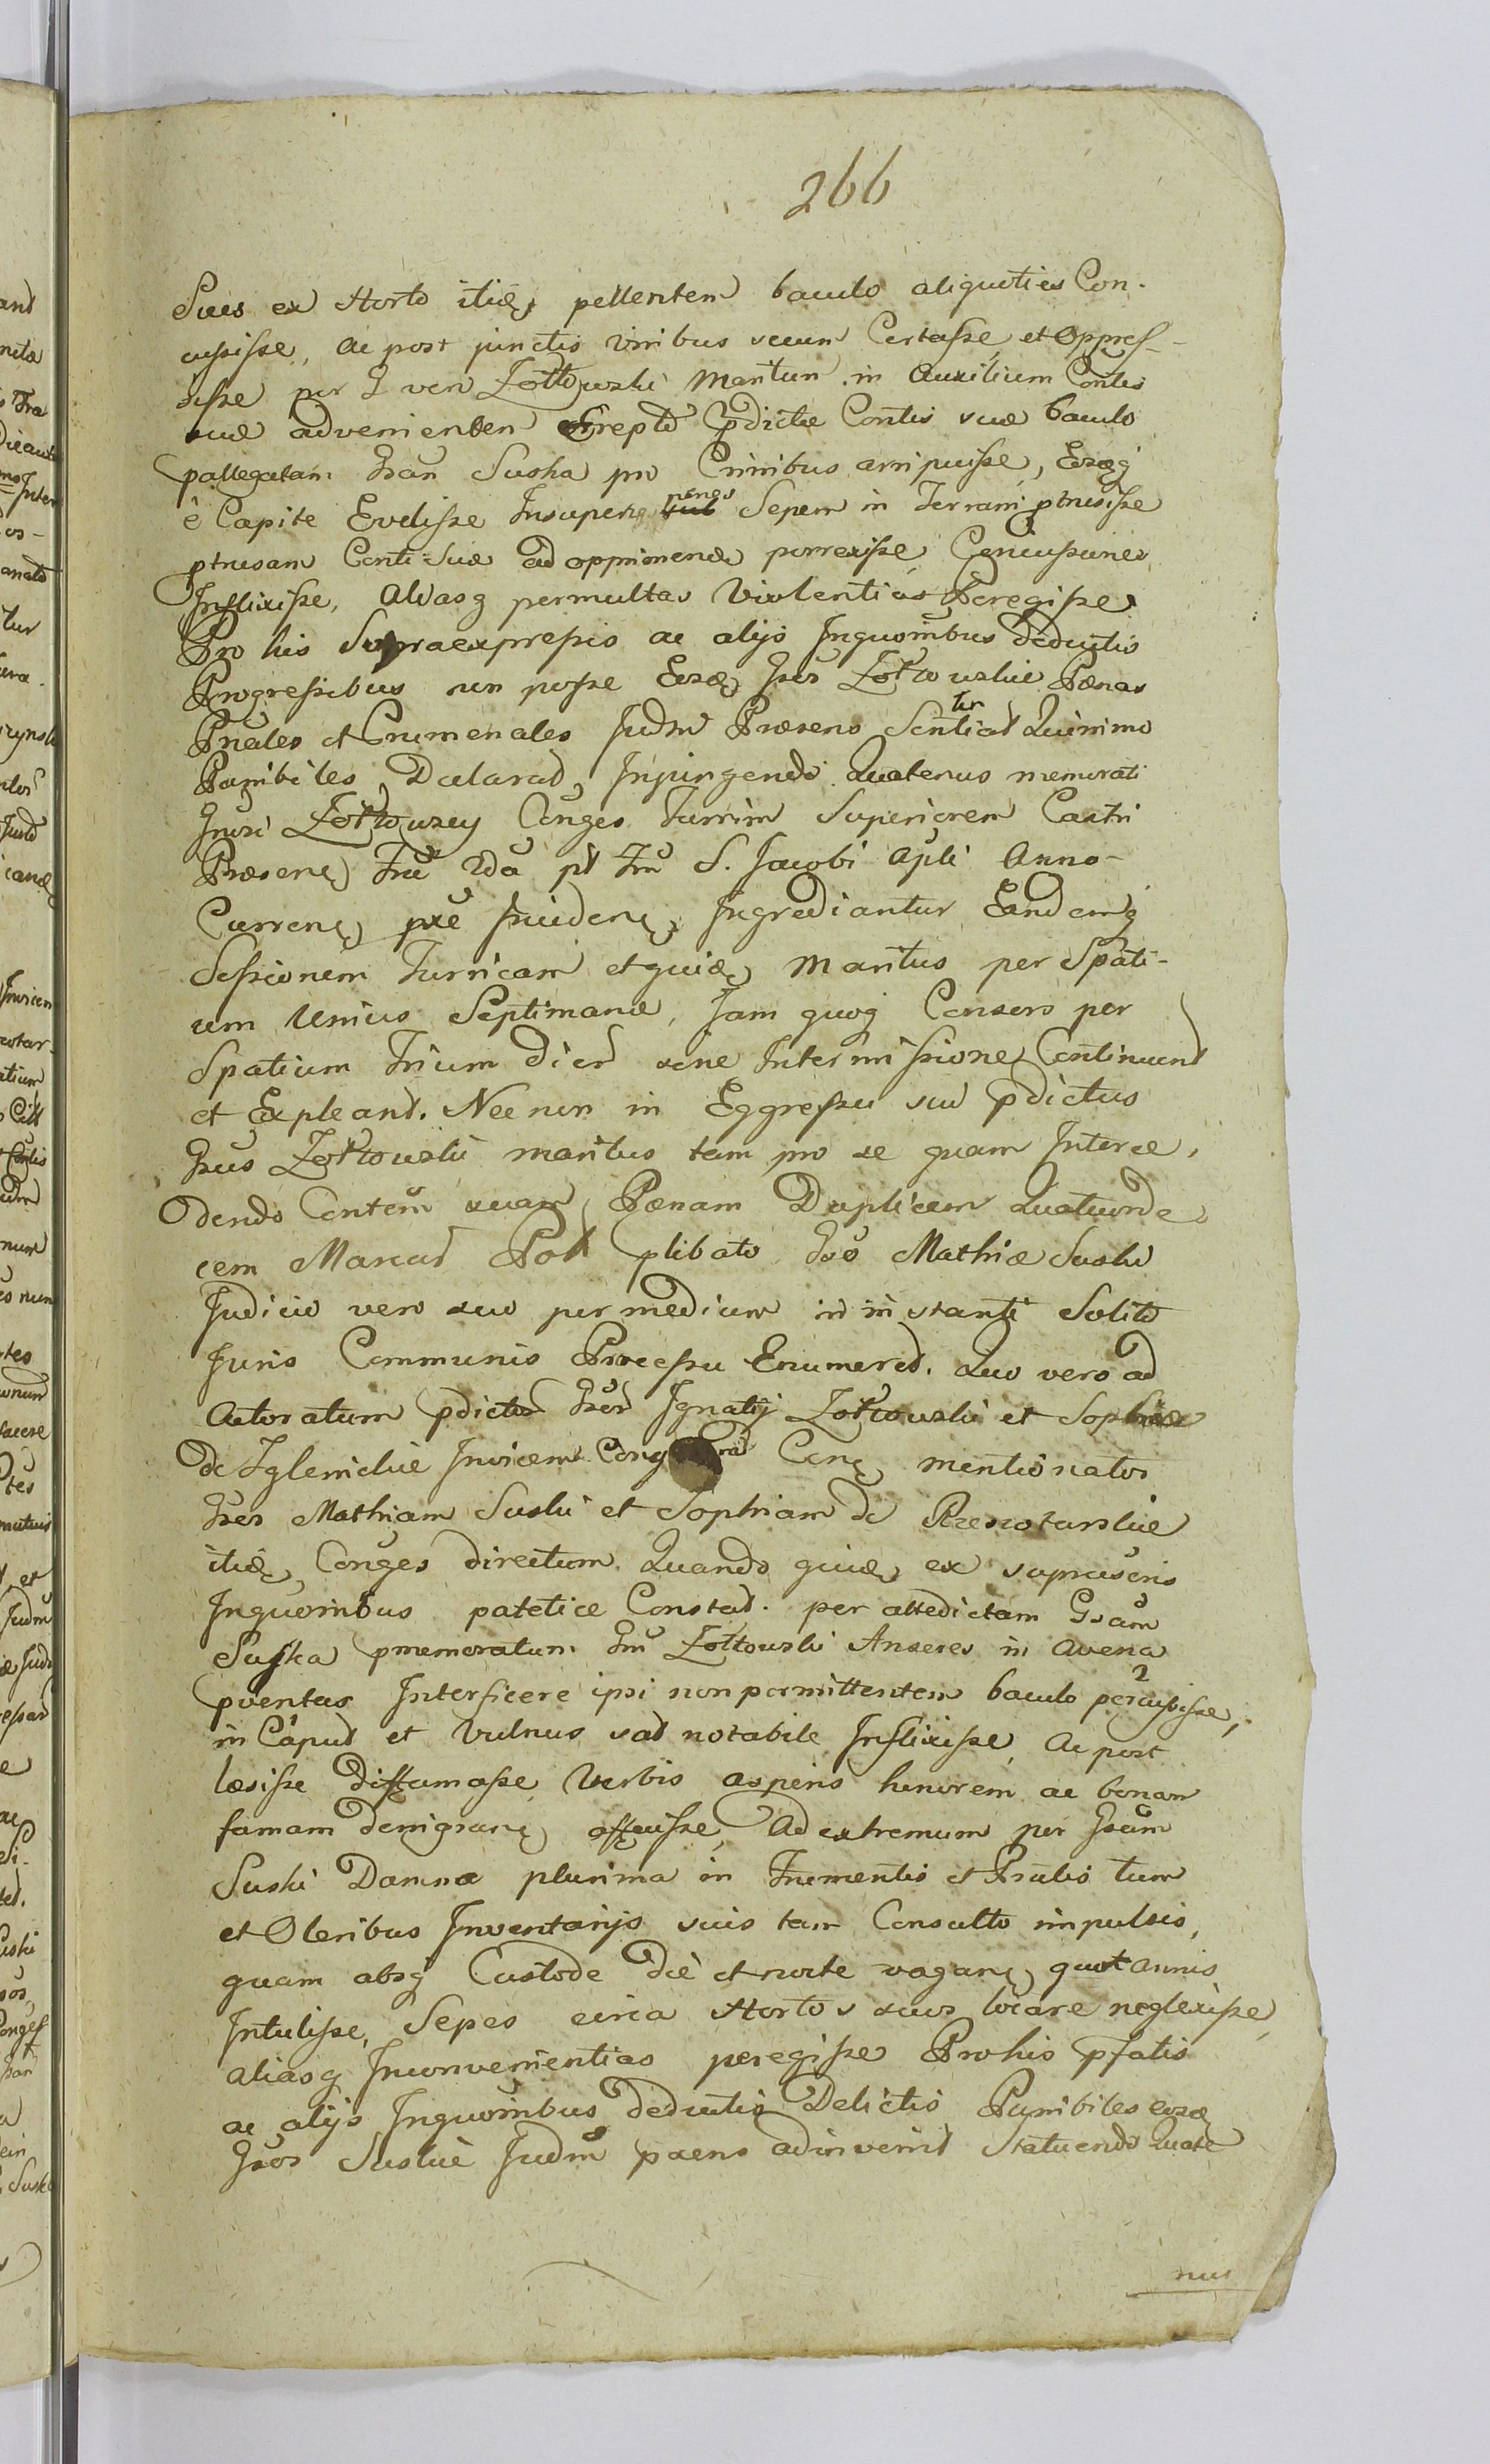 266
Sues ex Horto itidę, pellentem baculo aliquoties Con-
cussisse, ac post junctis viribus secum Certasse, et Oppres-
sisse per G ven Żołtowski Maritum in Auxilium Contis
suæ advenientem Erepto pdictæ Contis suæ baculo
pallegatam Gsam Suska pro Crinibus arripuisse, Eosqg
è Capite Evelisse Insuper penes Sepem in Terram ptrusisse
ptrusam Conti Suæ ad opprimendę porrexisse, Concussiones
Inflixisse, Aliasg permultas Violentias Peregisse
Pro his Supraexpressis ac alijs Inquoinibus deductis
Progressibus non posse Eosdę Gsos Żołtowskie Pænas
Pnales et Crumenales Judm Præsens Sentiat Quinimo
Punibiles Declarad, Injungendo Quatenus memorati
Gnosi Żołtowscy Conges Turrim Superiorem Castri
Præsenę, Fria 2da pt Fm S. Jacobi Apli Anno
Currenę, pxe Incidenę, Ingrediantur Eandemg
Sessionem Turricam et quidę, Maritus per Spati-
um Unius Septimanæ, Jam quoq Consors per
Spatium Trium dier sine Intermissione Continuent
et Expleant. Nec non in Eggressu suo pdictus
Gsus Żołtowski maritus tam pro se quam Interce,
dendo Contem suam Pænam Duplicem Quatuorde
cem Marcas Pol plibato Gso Mathiæ Suski
Judicio vero suo per medium in instanti Solito
Juris Communis Processu Enumered. Quo vero ad
Actoratum pdictor Gsor Ignatij Żołtowski et Sophiæ
de Zglenickie Invicem Cong Conę mentionatos
Gsos Mathiam Suski et Sophiam de Rzeszotarskie
itidę Conges directum. Quando quidę, ex supraseris
Inquoinibus patetice Constat. per attedictam Gsam
Suska pmemoratum Gm Żołtowski Anseres in Avena
pventas Interficere ipsi non permittentem baculo percussisse,
in Caput et Vulnus sat notabile Inflixisse, Ac post
læsisse diffamasse Verbis asperis honorem ac bonam
famam denigranę, affecisse, Ad extremum per Gsum
Suski Damna plurima in Frumentis et Pratis tum
et Oleribus Inventarijs suis tam Consulto impulsis,
quam absq Custode die et nocte vaganę, quot annis
Intulisse, Sepes circa Hortos suos locare neglexisse,
aliasq Inconvenientias peregisse Pro his pfatis
ac alijs Inquoinibus deductis Delictis Punibiles eosdę
Gsos Suskie Judm pxens adinvenit Statuendo Quate
nus